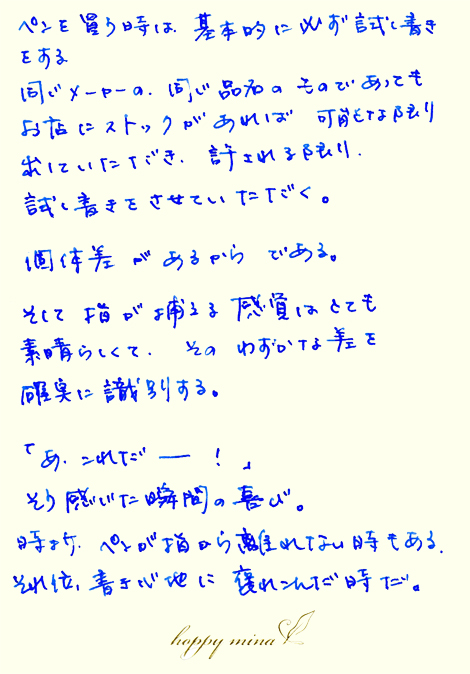 ペンを買う時は、基本的に必ず試し書き
をする
同じメーカーの、同じ品名のものであっても
お店にストックがあれば 可能な限り
出していただき、許される限り、
試し書きをさせていただく。
個体差があるからである。
そして指が捕える感覚はとても
素晴らしくて、そのわずかな差を
確実に識別する。
「あ、これだー!」
そう感じた瞬間の喜び。
時折、ペンが指から離れない時もある。
それ位、書き心地に惚れこんだ時だ。
happy mina